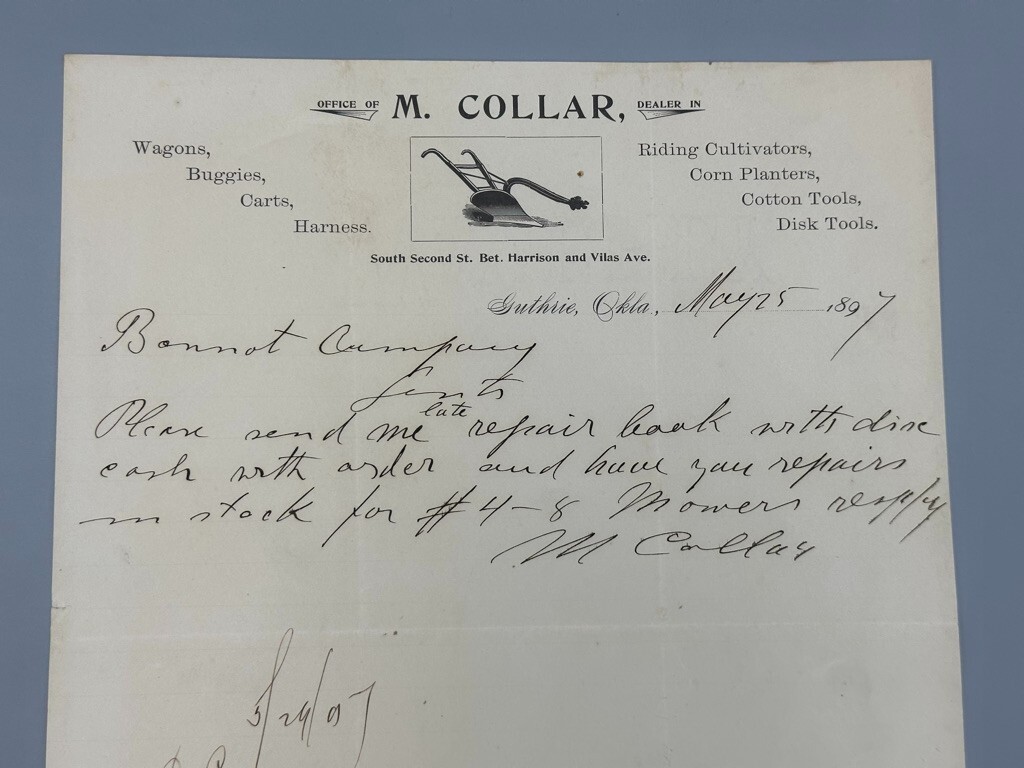 OFFICE OF M. COLLAR, DEALER IN
Wagons,
Buggies,
Carts,
Harness.
Riding Cultivators,
Corn Planters,
Cotton Tools,
Disk Tools.
South Second St. Bet. Harrison and Vilas Ave.
Guthrie, Okla, May 25 1897
Bonnot Company
Gents
late
Please send me repair book with disc
cash with order and have you repairs
in stock for #4-8 Mowers respfy
M Collar